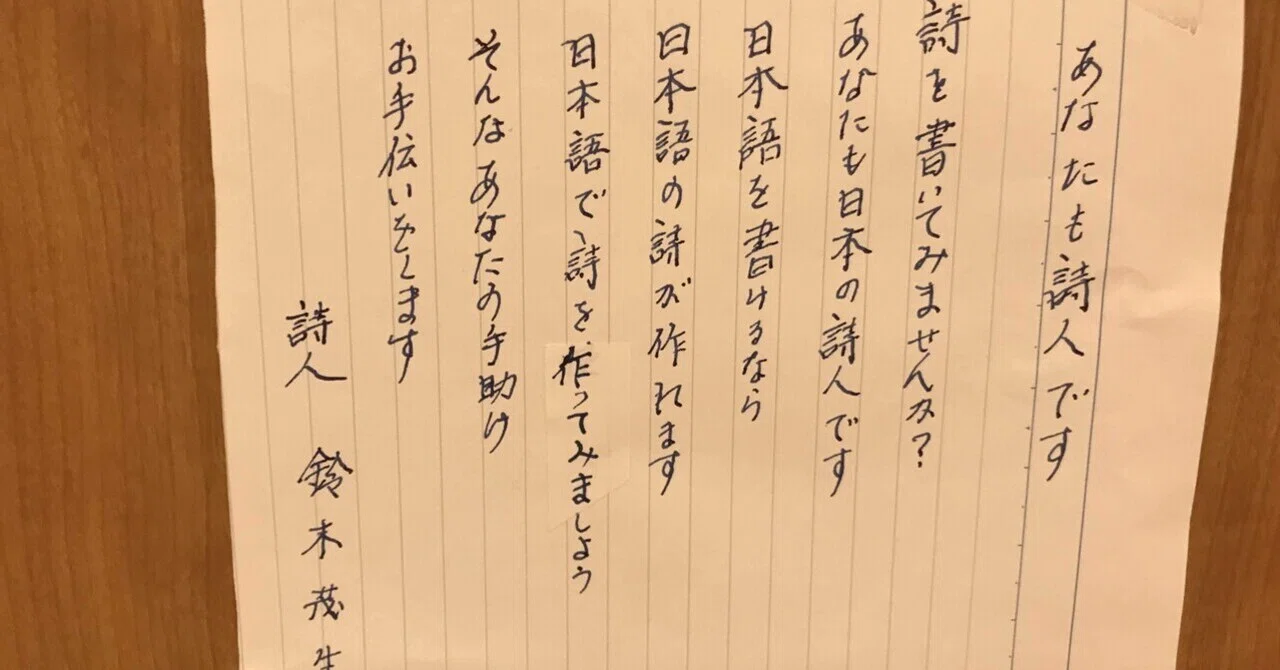 あなたも詩人です
詩を書いてみませんか?
あなたも日本の詩人です
日本語を書けるなら
日本語の詩が作れます
日本語で詩を作ってみましょう
そんなあなたの手助け
お手伝いをします
詩人 鈴木茂生